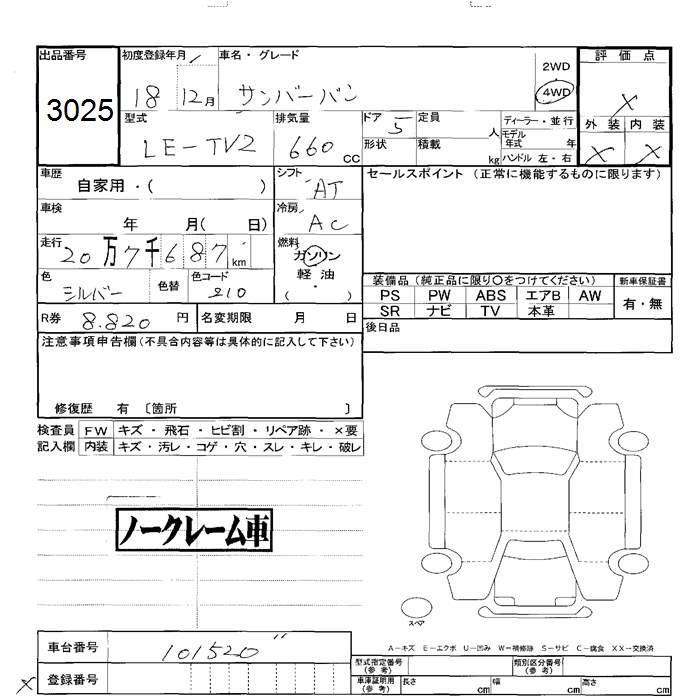 出品番号
3025
初度登録年月
18 12月
車名・グレード
サンバーバン
2WD
4WD
評価点
X
外装 内装
X X
型式
LE-TV2
排気量
660 CC
ドア 5
定員 人
ディーラー・並行
モデル年式 年
形状
積載 kg
ハンドル 左・右
車歴
自家用・( )
シフト
AT
セールスポイント (正常に機能するものに限ります)
車検
年 月( 日)
冷房
AC
走行
20万7千687km
燃料
ガソリン
軽油・
( )
色
シルバー
色替
色コード
210
装備品 (純正品に限り〇をつけてください)
新車保証書
PS PW ABS エアB AW
有・無
SR ナビ TV 本革
R券 8.820 円
名変期限 月 日
後日品
注意事項申告欄(不具合内容等は具体的に記入して下さい)
修復歴 有 〔箇所 〕
検査員
記入欄
FW キズ・飛石・ヒビ割・リペア跡・×要
内装 キズ・汚レ・コゲ・穴・スレ・キレ・破レ
ノークレーム車
スペア
A−キズ E−エクボ U−凹み W−補修跡 S−サビ C−腐食 XX−交換済
車台番号
101520"
X
登録番号
型式指定番号
(参考)
類別区分番号
(参考)
車庫証明用
(参考)
長さ cm 幅 cm 高さ cm